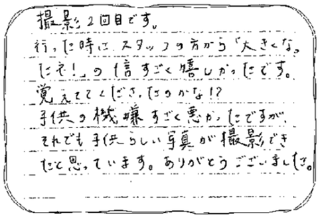 撮影2回目です。
行った時に、スタッフの方から「大きくな。
たネ!」の信すごく嬉しかったです。
覚えててくださったのかな!?
子供の機嫌すごく悪かったですが、
それでも子供らしい写真が撮影でき
たと思っています。ありがとうございました。